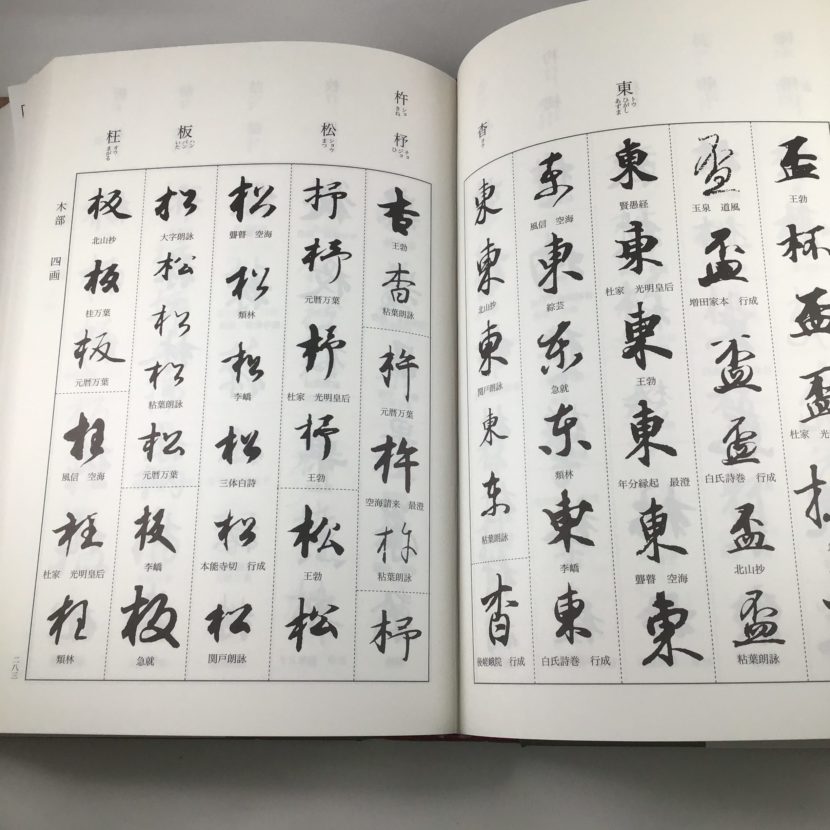 東 トウ ひがし あずま
杳 ヨウ
盃
王勃
杯
盃
盃
杜家 光明皇后
盃
玉泉 道風
盃
増田家本 行成
盃
盃
白氏詩巻 行成
盃
北山抄
盃
粘葉朗詠
東
賢愚経
東
杜家 光明皇后
東
王勃
東
年分縁起 最澄
東
聾瞽 空海
東
東
風信 空海
東
綜芸
東
急就
東
類林
東
李嶠
東
白氏詩巻 行成
東
東
北山抄
東
関戸朗詠
東
東
粘葉朗詠
杳
後嵯峨院 行成
杵 ショ きね
杼 チョ ジョ ひ
松 ショウ まつ
板 ハン バン いた
枉 オウ まがる
杳
王勃
杳
粘葉朗詠
杵
元暦万葉
杵
空海請来 最澄
杵
粘葉朗詠
杼
杼
杼
元暦万葉
杼
杜家 光明皇后
杼
王勃
松
王勃
松
松
聾瞽 空海
松
類林
松
李嶠
松
三体白詩
松
本能寺切 行成
松
関戸朗詠
松
大字朗詠
松
松
松
粘葉朗詠
松
元暦万葉
板
李嶠
板
急就
板
北山抄
板
桂万葉
板
元暦万葉
枉
風信 空海
枉
杜家 光明皇后
枉
類林
木部 四画
二八三